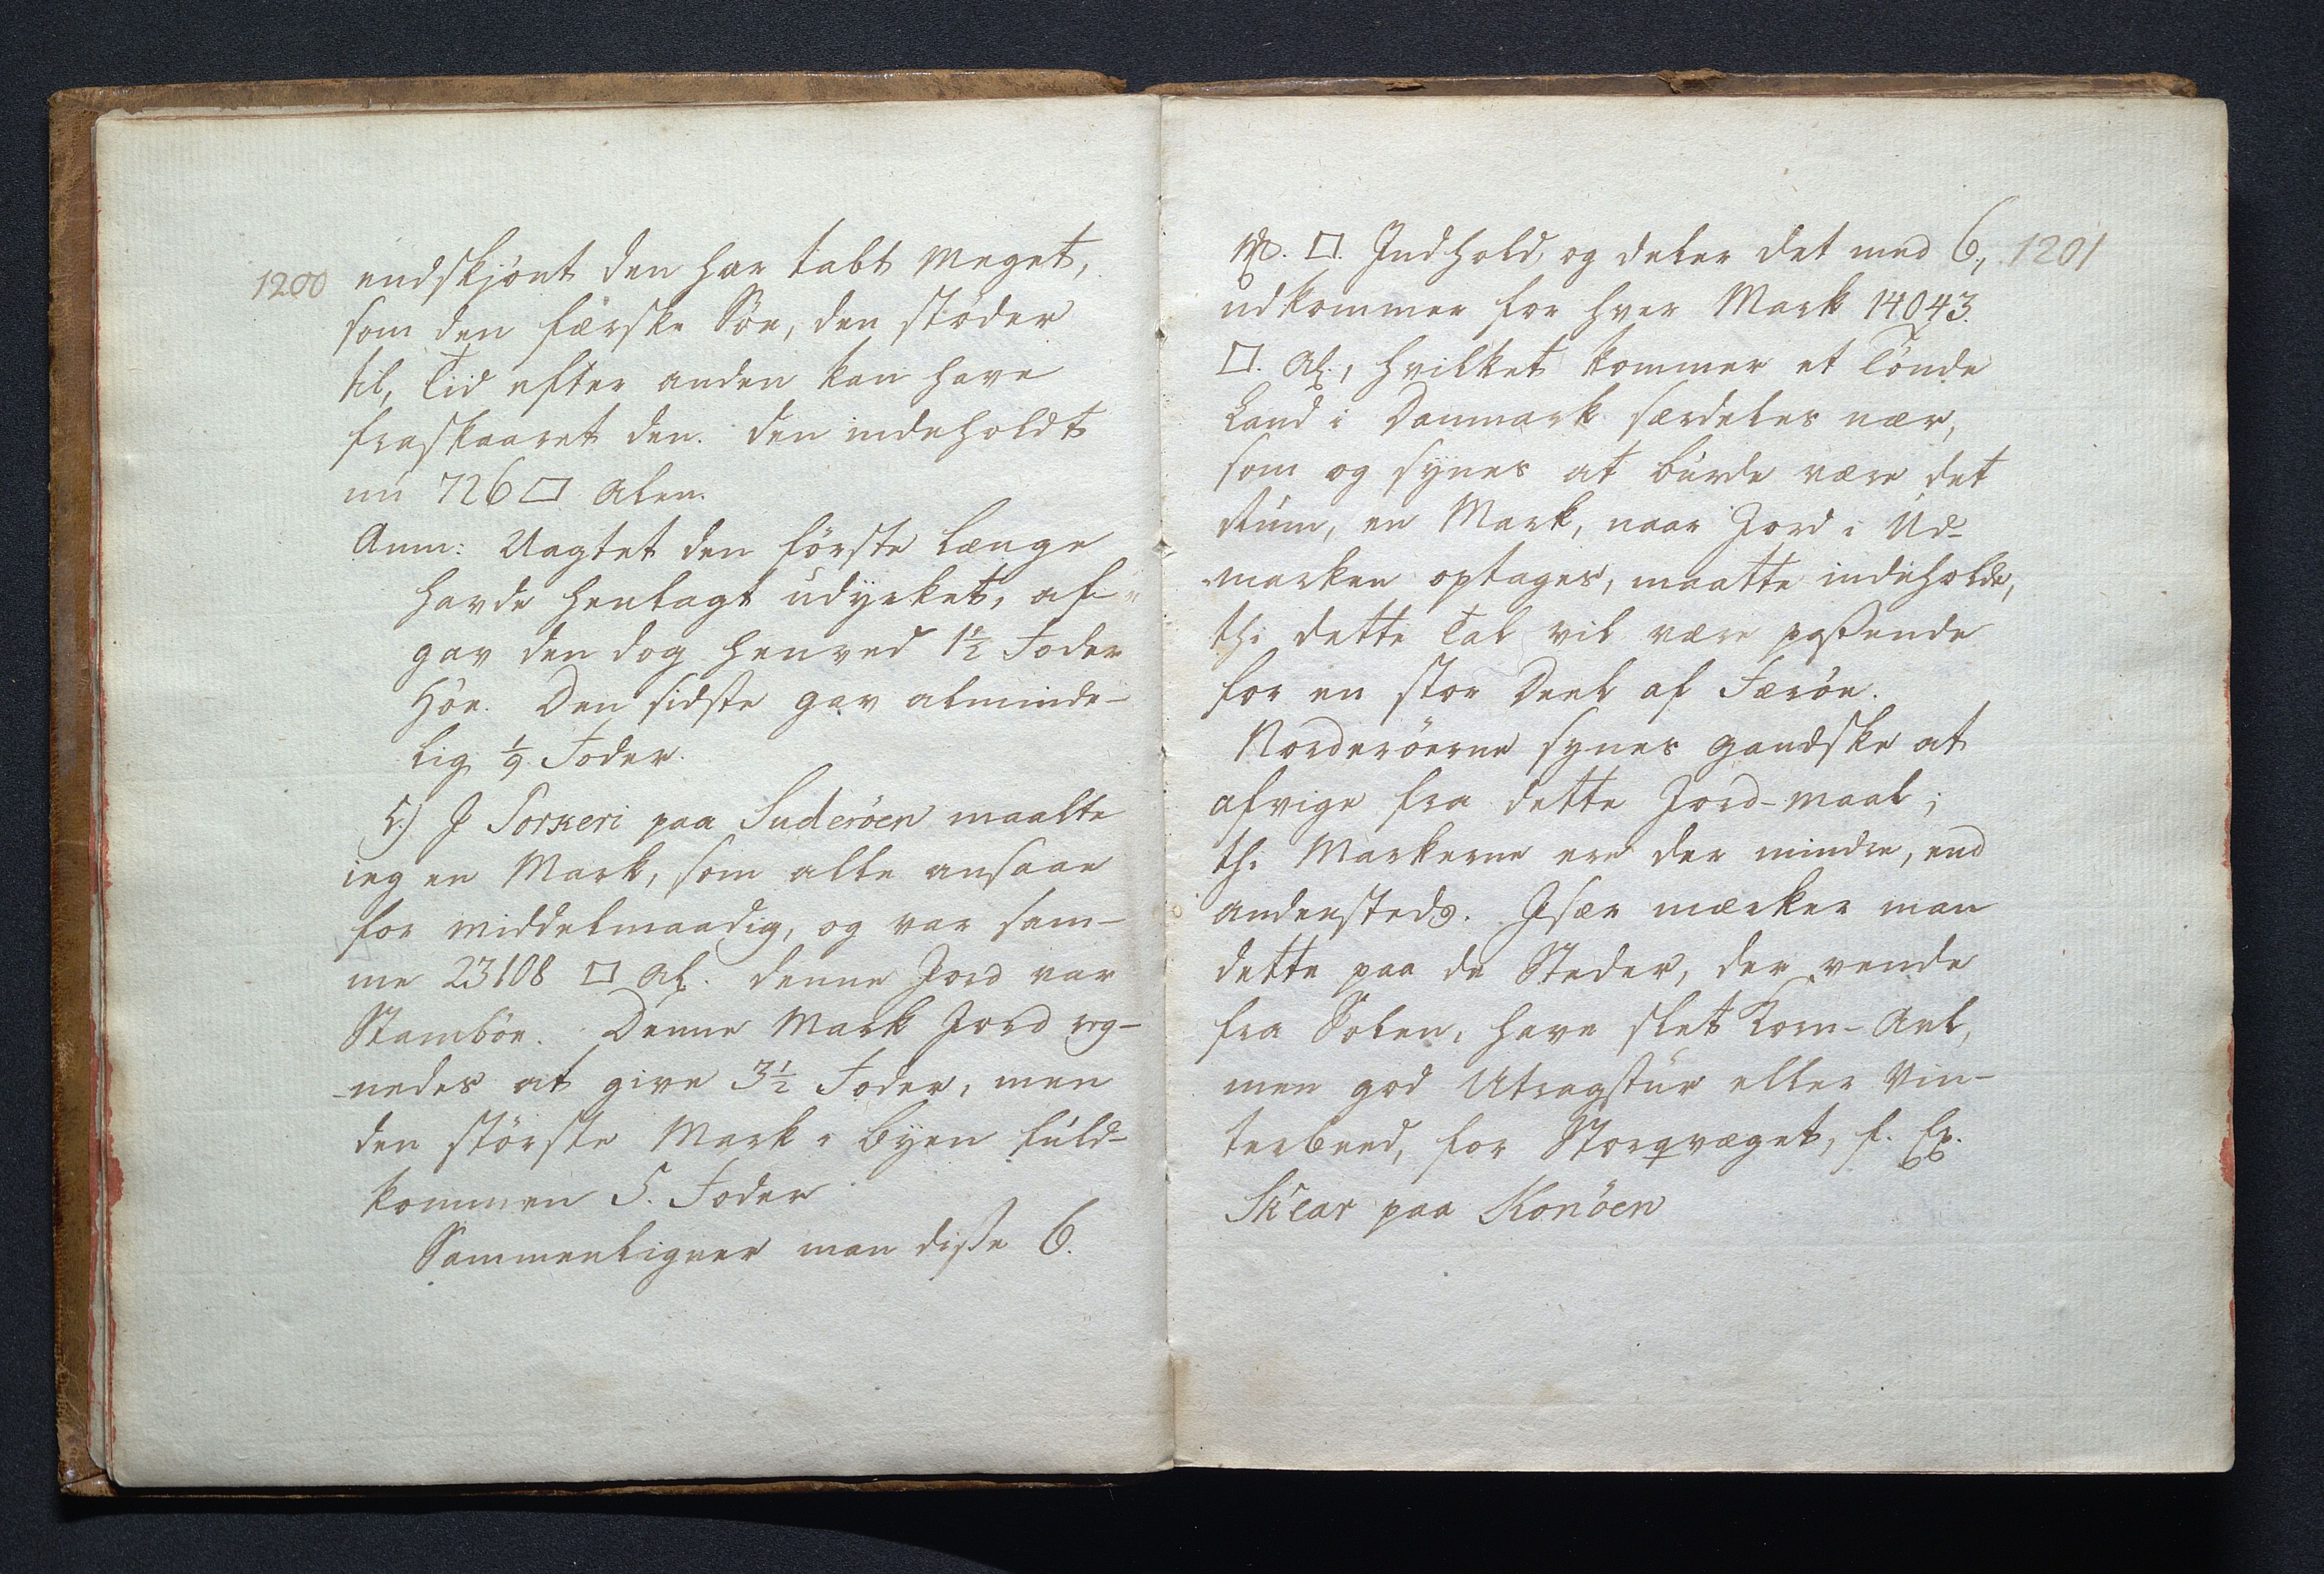 1200
endskjönt den har tabt meget,
som den færske Söe, den stöder
til, Tid efter anden kan have
fraskaaret den. den indeholdt
nu 726 □ Alen.
Anm: Uagtet den förste længe
havde henlagt udyrket, af-
gav den dog henved 1½ Foder
Höe. Den sidste gav alminde-
lig ⅑ Foder.
5.) I Porkeri paa Suderöen maalte
ieg en Mark, som alle ansaae
for middelmaadig, og var sam-
me 23108 □ Al. denne Jord var
Stamböe. Denne Mark Jord reg-
-nedes at give 3½ Foder, men
den störste Mark i Byen fuld-
kommen 5. Foder
Sammenligner man disse 6.
1201
□. Indhold, og deler det med 6,
udkommer for hver Mark 14043.
□. Al., hvilket kommer et Tönde
Land i Danmark særdeles nær,
som og synes at burde være det
Rum, en Mark, naar Jord i Ud-
-marken optages, maatte indeholde,
thi dette Tal vil være passende
for en stor Deel af Færöe.
Norderöerne synes gandske at
afvige fra dette Jord-maal;
thi Markerne ere der mindre, end
andensteds. Især mærker man
dette paa de Steder, der vende
fra Solen, have slet Korn-Aul,
men god Utragstur eller Vin-
terbeed, for Storqvæget, f. Ex.
Skear paa Konöen